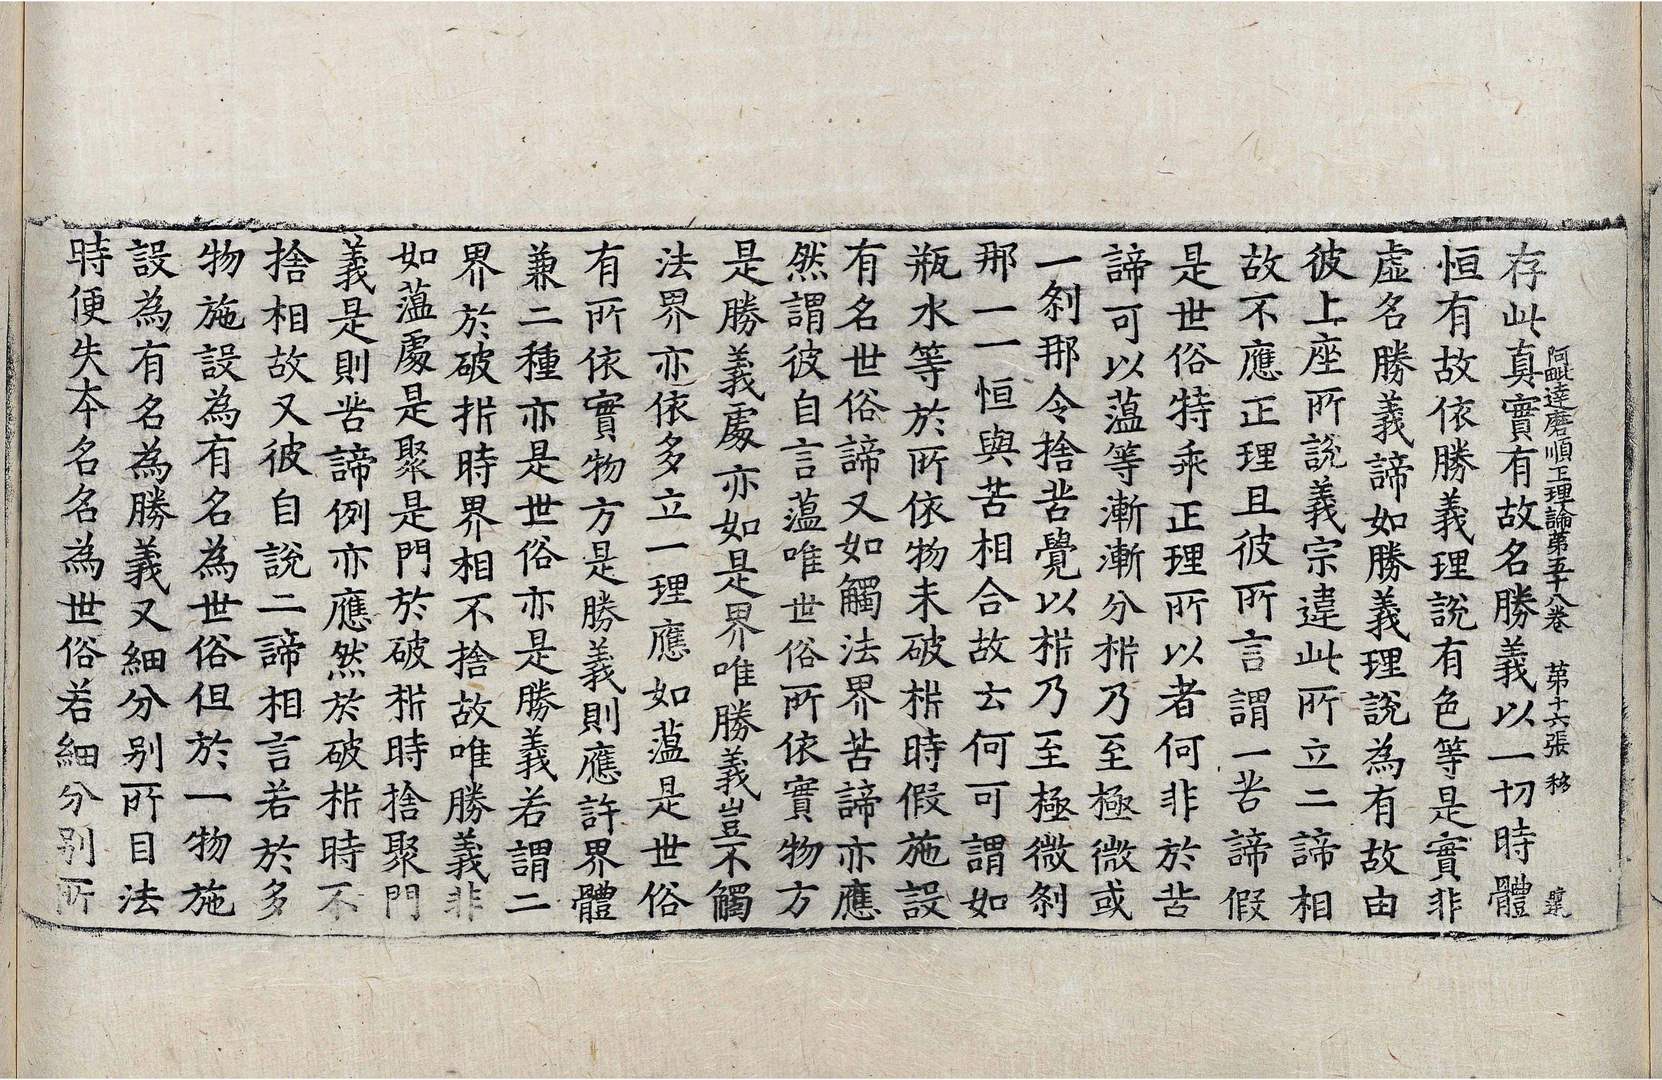 阿毗達磨順正理論第五十八卷 第十六張 移
存此真實有故名勝義以一切時體
恒有故依勝義理說有色等是實非
虛名勝義諦如勝義理說為有故由
彼上座所說義宗違此所立二諦相
故不應正理且彼所言謂一苦諦假
是世俗特乖正理所以者何非於苦
諦可以蕰等漸漸分析乃至極微或
一剎那令捨苦覺以析乃至極微剎
那一一恒與苦相合故云何可謂如
瓶水等於所依物未破析時假施設
有名世俗諦又如觸法界苦諦亦應
然謂彼自言蕰唯世俗所依實物方
是勝義處亦如是界唯勝義豈不觸
法界亦依多立一理應如蕰是世俗
有所依實物方是勝義則應許界體
兼二種亦是世俗亦是勝義若謂二
界於破析時界相不捨故唯勝義非
如蕰處是聚是門於破析時捨聚門
義是則苦諦例亦應然於破析時不
捨相故又彼自說二諦相言若於多
物施設為有名為世俗但於一物施
設為有名為勝義又細分別所目法
時便失本名名為世俗若細分別所